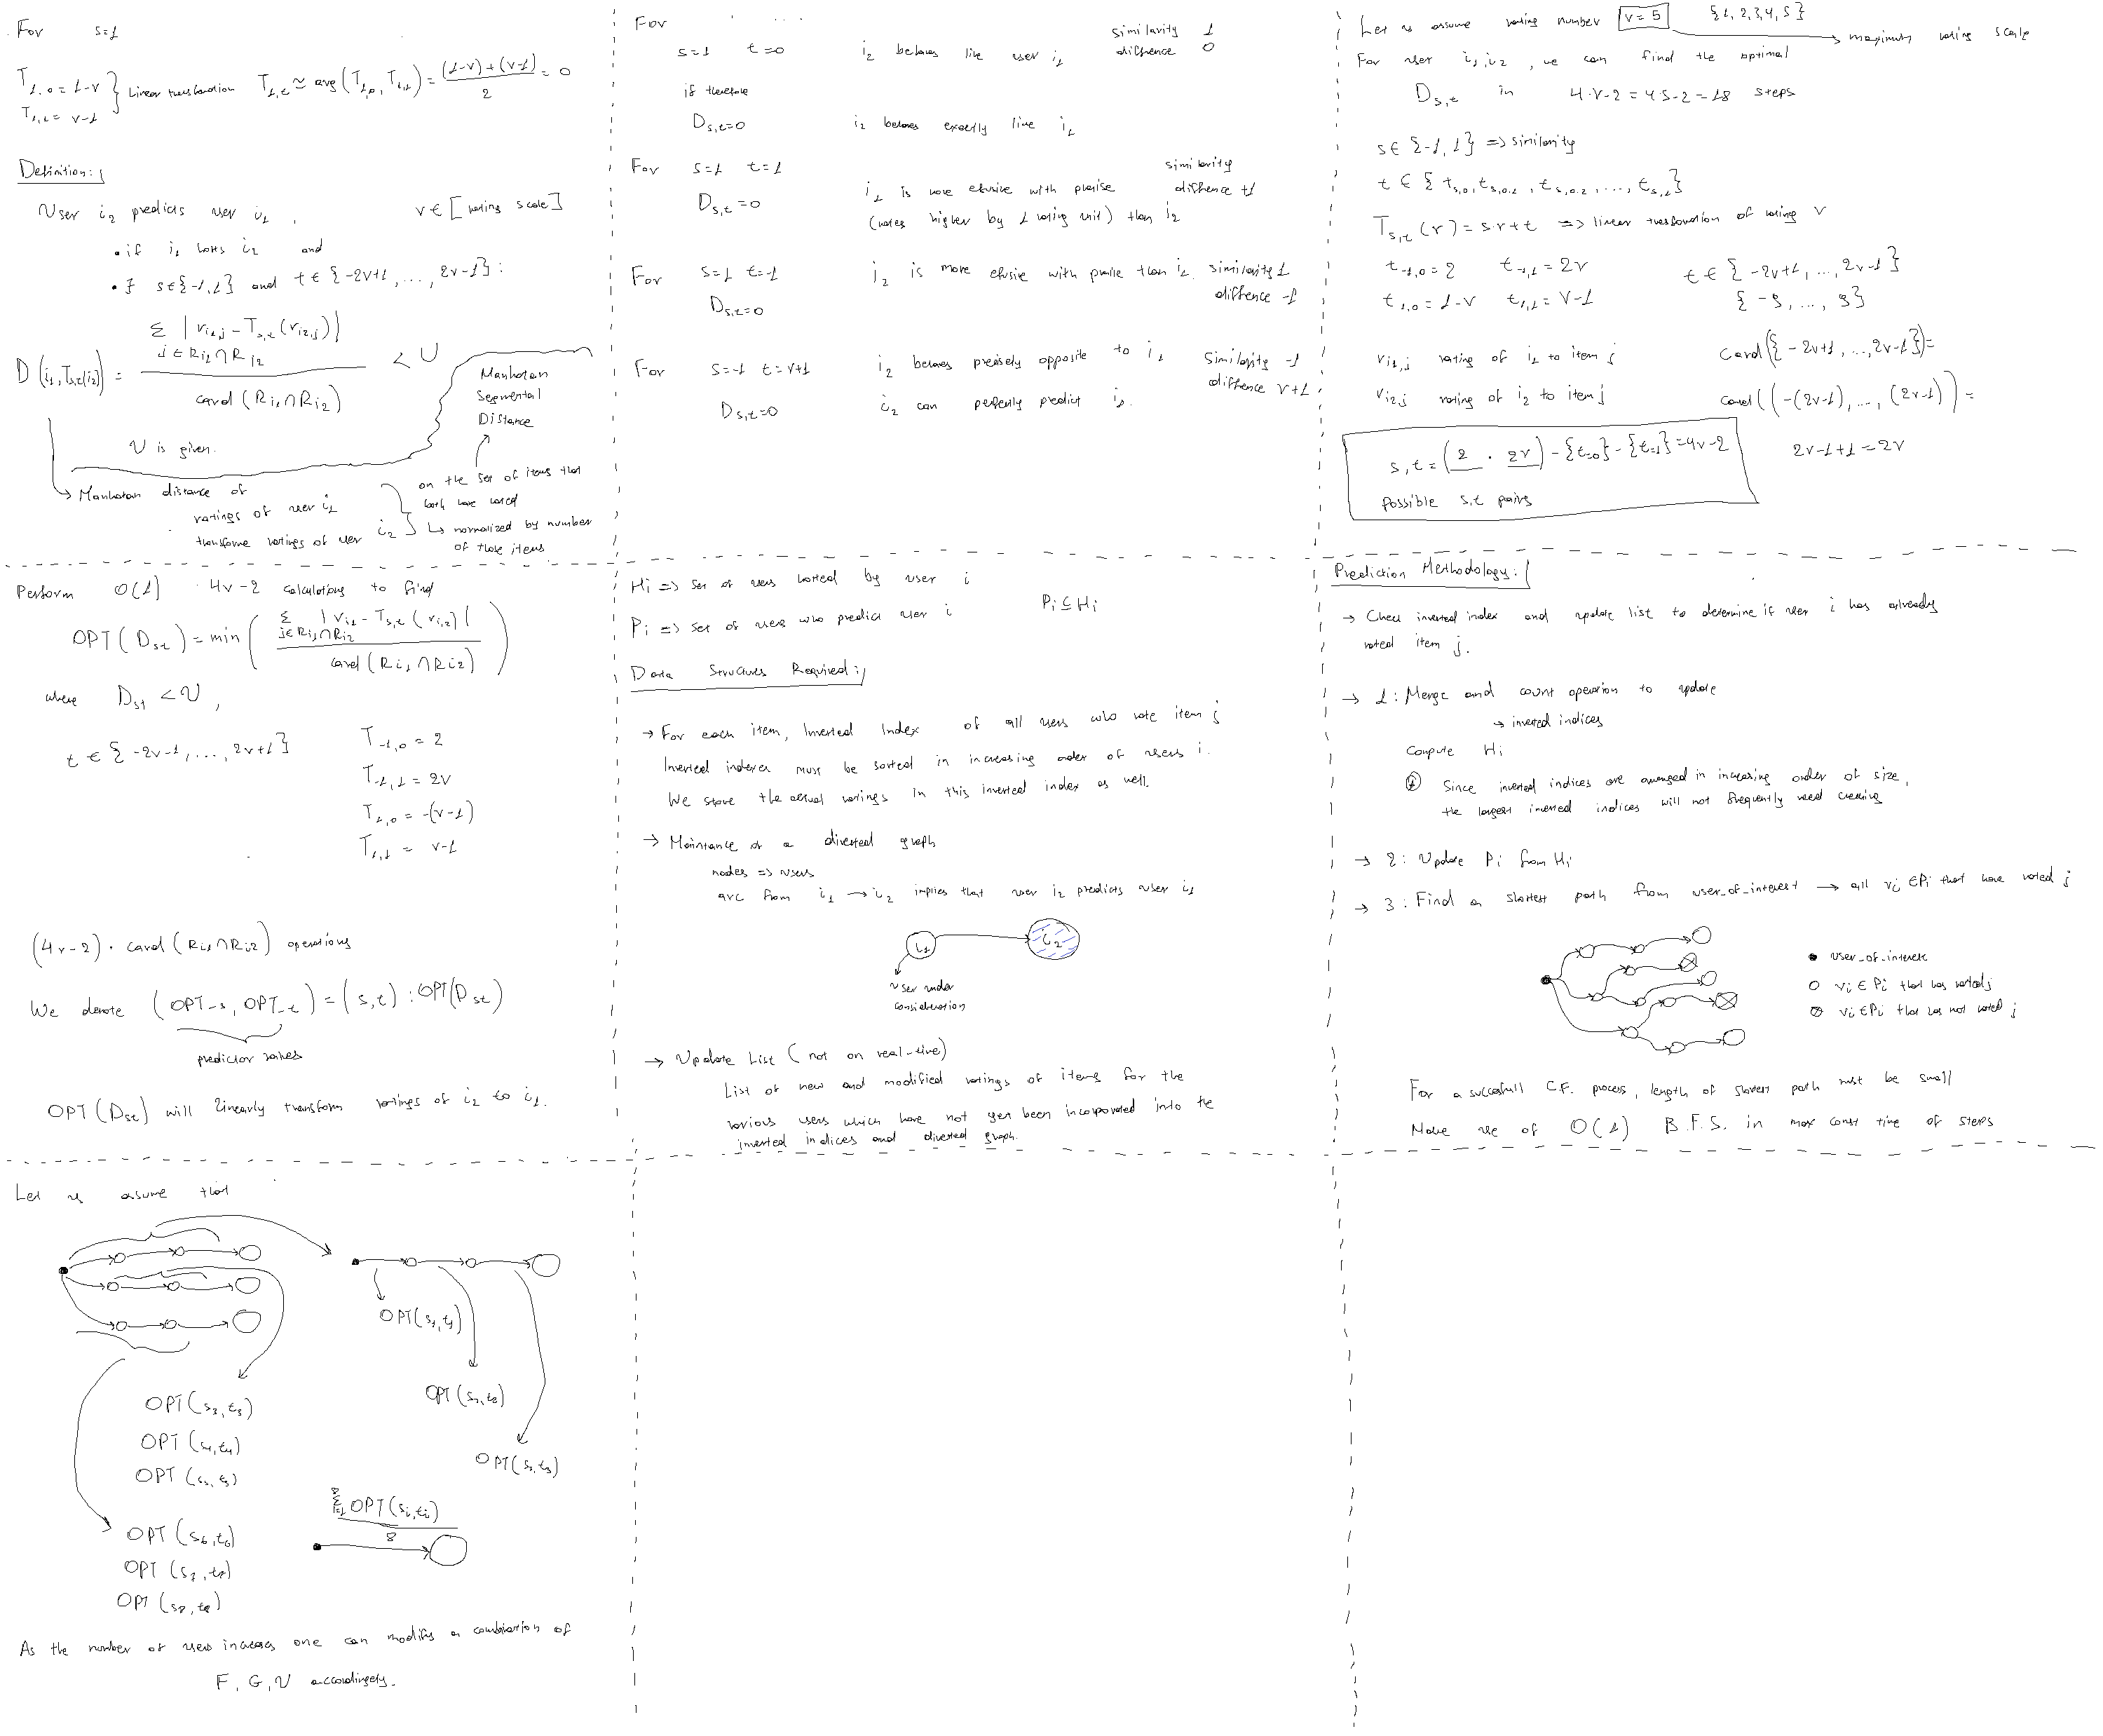 For s=1
T1,0 = 1-v } Linear transformation T1,t ≃ avg(T1,0, T1,1) = ((1-v)+(v-1))/2 = 0
T1,1 = v-1
Definition:
User i2 predicts user i1, v ∈ [rating scale]
• if i1 horts i2 and
• ∃ s∈{-1,1} and t∈{-2v+1, ..., 2v-1}:
D(i1, Ts,t(i2)) = Σ j∈Ri1∩Ri2 |vi1,j - Ts,t(vi2,j)| / card(Ri1∩Ri2) < U
U is given.
Manhatan
Segmental
Distance
on the set of items that
both have voted
↳ normalized by number
of those items
↳ Manhatan distance of
ratings of user i1
transforme ratings of user i2
For
s=1 t=0 i2 behaves like user i1 similarity 1
difference 0
if therefore
Ds,t=0 i2 behaves exactly like i1
For s=1 t=1 similarity
i1 is more efusive with praise difference +1
Ds,t=0 (rates higher by 1 rating unit) than i2
For s=1 t=-1 i2 is more efusive with praise than i1. similarity 1
difference -1
Ds,t=0
For s=-1 t=v+1 i2 behaves precisely opposite to i1 Similarity -1
difference v+1
Ds,t=0 i2 can perfectly predict i1.
Let us assume rating number v=5 {1,2,3,4,5}
→ maximum rating scale
For user i1,i2, we can find the optimal
Ds,t in 4·v-2=4·5-2=18 steps
s∈{-1,1} => similarity
t ∈ {ts,0, ts,0.1, ts,0.2, ..., ts,1}
Ts,t(v) = s·v+t => linear transformation of rating v
t-1,0=2 t-1,1=2v t∈{-2v+1, ..., 2v-1}
t1,0=1-v t1,1=v-1 {-9, ..., 9}
vi1,j rating of i1 to item j card({-2v+1, ..., 2v-1})=
vi2,j rating of i2 to item j card((-(2v-1), ..., (2v-1))=
s,t=(2 · 2v) - {t=0} - {t=1} = 4v-2
possible s,t pairs
2v-1+1=2v
Perform O(1) 4v-2 calculations to find
OPT(Dst) = min( Σ j∈Ri1∩Ri2 |vi1 - Ts,t(vi,2)| / card(Ri1∩Ri2) )
where Dst < U,
t ∈ {-2v-1, ..., 2v+1}
T-1,0 = 2
T-1,1 = 2v
T1,0 = -(v-1)
T1,1 = v-1
(4v-2) · card(Ri1∩Ri2) operations
We denote (OPT-s, OPT-t) = (s,t) : OPT(Dst)
predictor values
OPT(Dst) will linearly transform ratings of i2 to i1.
Hi => set of users horted by user i
Pi => set of users who predict user i Pi⊆Hi
Data Structures Required:
→ For each item, Inverted Index of all users who rate item j
Inverted indexes must be sorted in increasing order of users i.
We store the actual ratings in this inverted index as well.
→ Maintance of a directed graph
nodes => users
arc from i1 → i2 implies that user i2 predicts user i1
i1 i2
user under
consideration
→ Update List (not on real-time)
List of new and modified ratings of items for the
various users which have not yet been incorporated into the
inverted indices and directed graph.
Prediction Methodology:
→ Check inverted index and update list to determine if user i has already
voted item j.
→ 1: Merge and count operation to update
→ inverted indices
Compute Hi
Since inverted indices are arranged in increasing order of size,
the largest inverted indices will not frequently need checking
→ 2: Update Pi from Hi
→ 3: Find a shortest path from user_of_interest → all vi∈Pi that have voted j
user_of_interest
vi∈Pi that has voted j
vi∈Pi that has not voted j
For a succesfull C.F. process, length of shortest path must be small
Make use of O(1) B.F.S. in max const time of steps
Let us assume that
OPT(s1,t1)
OPT(s2,t2)
OPT(s3,t3)
OPT(s3,t3)
OPT(s4,t4)
OPT(s5,t5)
OPT(s6,t6)
OPT(s7,t7)
OPT(s8,t8)
Σ i=1 8 OPT(si,ti) / 8
As the number of users increases one can modify a combination of
F, G, U accordingely.